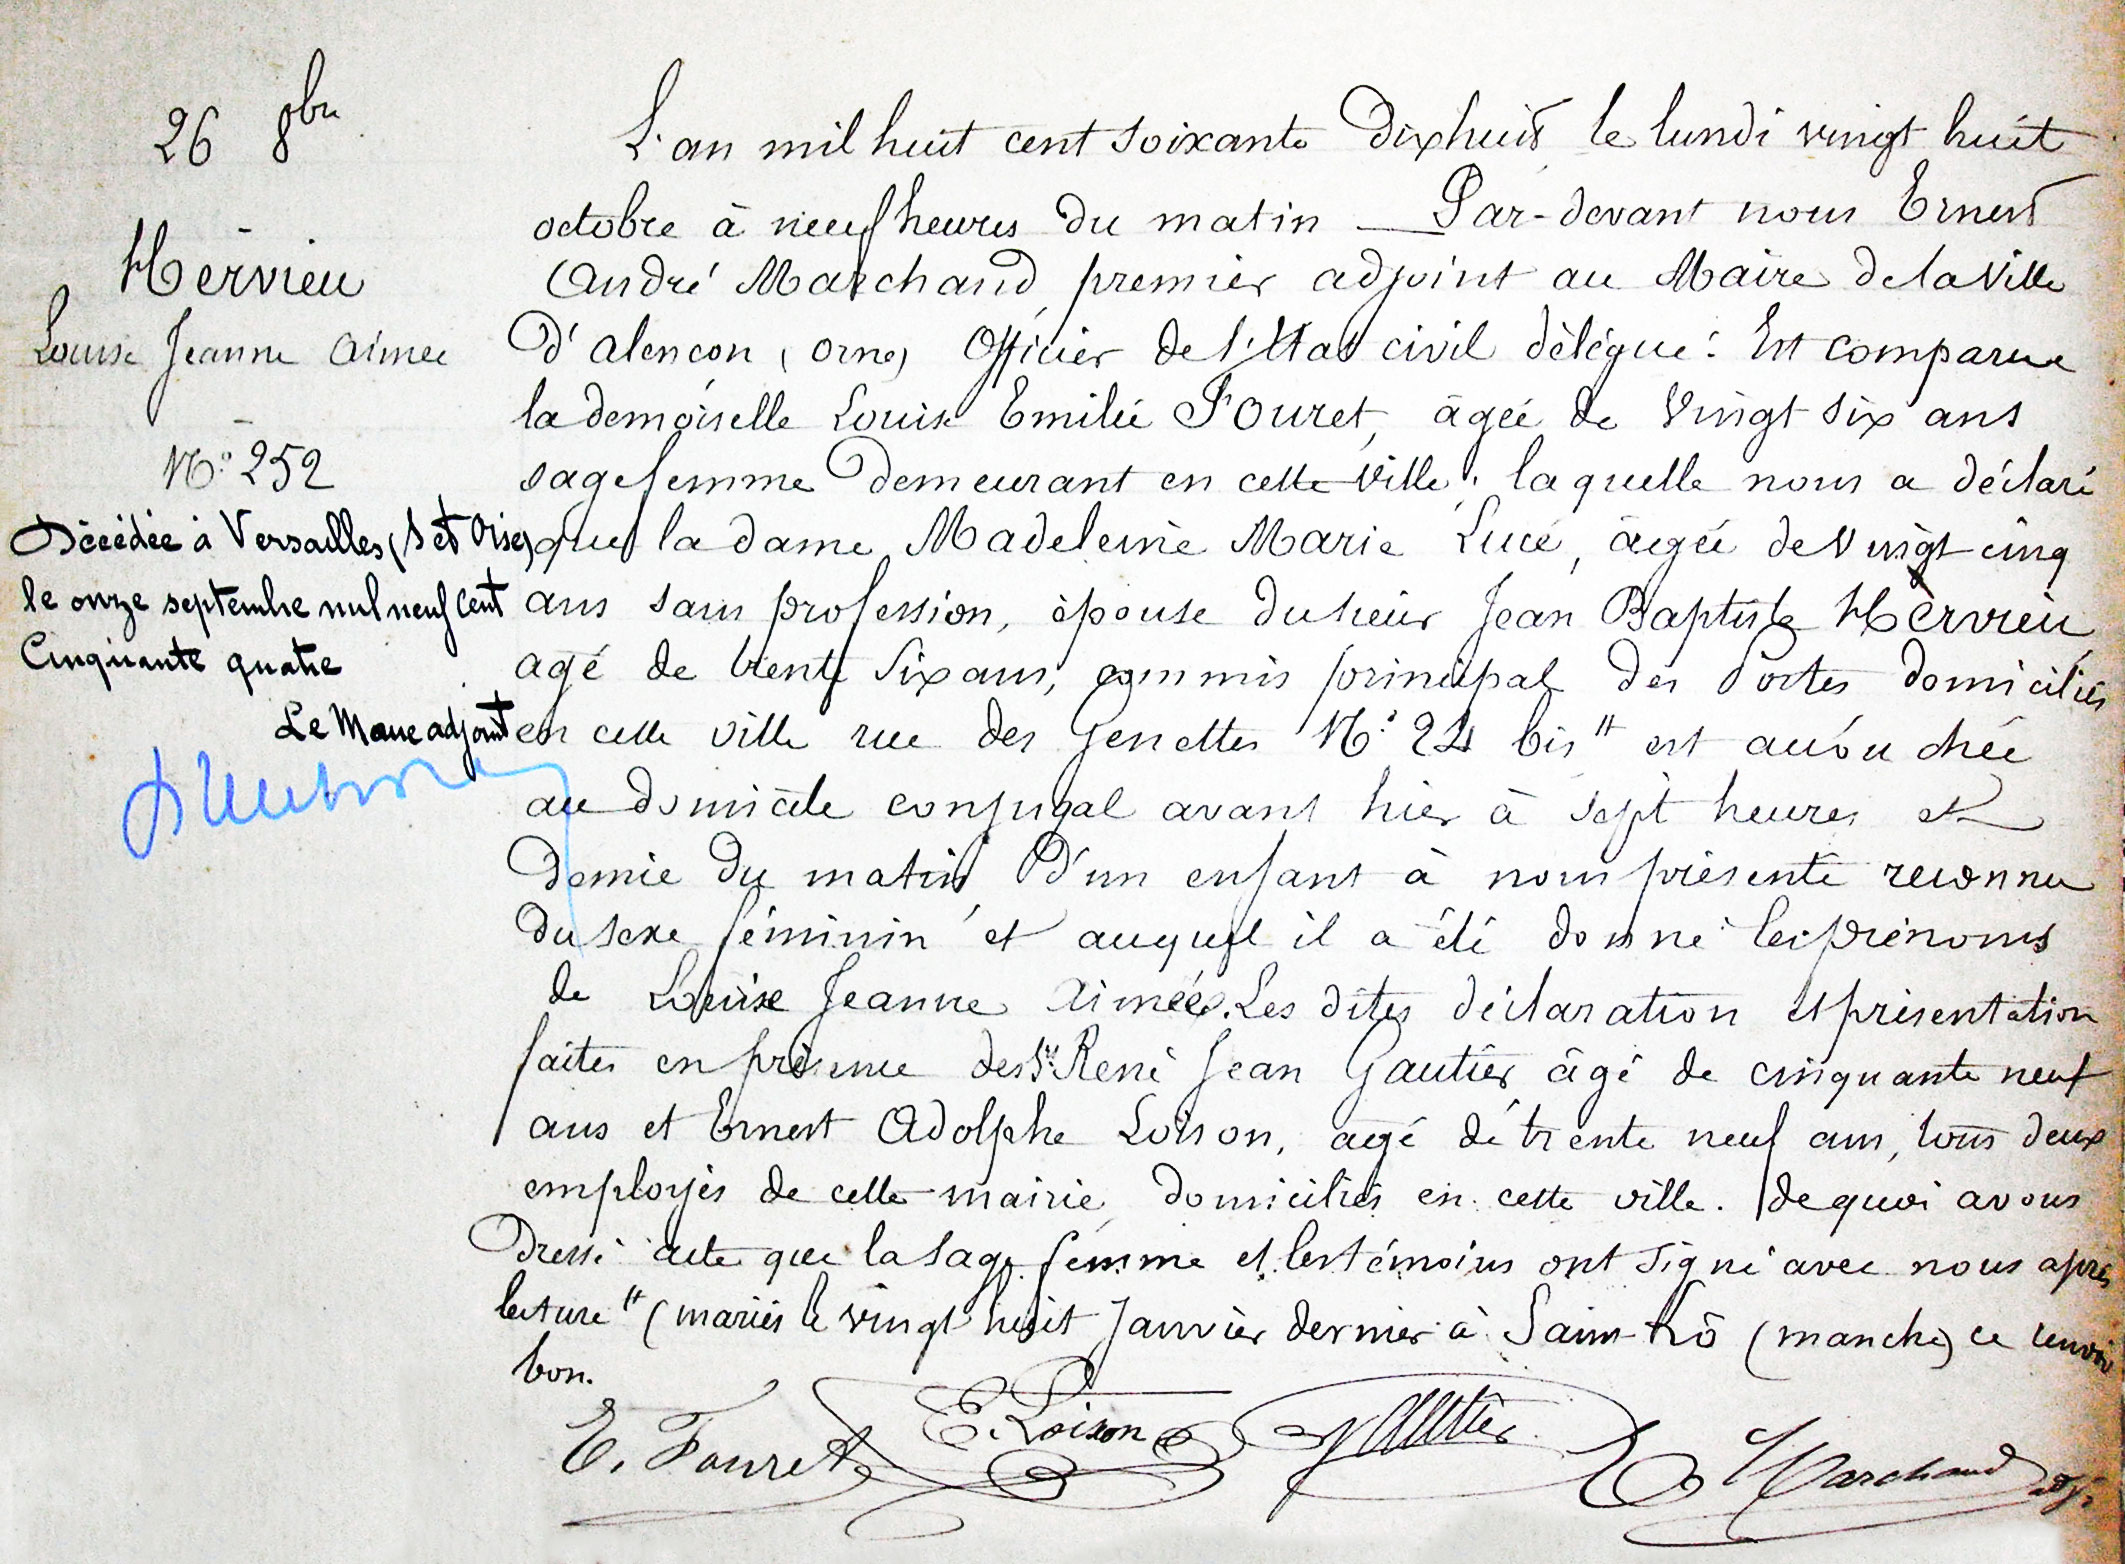 26 8bre
Hervieu
Louise Jeanne Aimée
No 252
Décédée à Versailles, (S et Oise)
le onze septembre mil neuf cent
Cinquante quatre
Le Maire adjoint
L'an mil huit cent soixante dixhuit le lundi vingt huit
octobre à neuf heures du matin — Par-devant nous Ernest
André Marchand premier adjoint au Maire de la Ville
d'alençon (orne) Officier de l'Etat civil délégué : Est comparue
la demoiselle Louise Emilie Fouret, âgée de Vingt six ans
sagefemme demeurant en cette ville ; laquelle nous a déclaré
que la dame Madeleine Marie Lucé, âgée de Vingt-cinq
ans sans profession, épouse du sieur Jean Baptiste Hervieu
agé de trente six ans, commis principal des Postes domiciliés
en cette ville rue des Genettes No 24 bis " est accouchée
au domicile conjugal avant hier à sept heures et
demie du matin d'un enfant à nous présenté reconnu
du sexe féminin et auquel il a été donné les prénoms
de Louise Jeanne Aimée. Les dites déclaration et présentation
faites en présence des Srs René Jean Gautier âgé de cinquante neuf
ans et Ernest Adolphe Loison, agé de trente neuf ans, tous deux
employés de cette mairie, domiciliés en cette ville. de quoi avons
Dressé acte que la sage femme et les témoins ont signé avec nous après
lecture " (mariés le vingt huit Janvier dernier à Saint-Lô (manche) ce renvoi
bon.
E. Fouret E. Loison Gautier E Marchand adj.